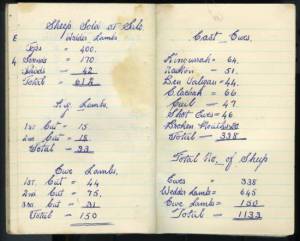 Sheep Sold at Sale.
Wedder Lambs
Tops = 400.
Seconds = 170
Thirds = 42
Total = 612
Lambs.
1st Cut = 15
2nd Cut = 18
Total - 33
Ewe Lambs.
1st. Cut = 44
2nd Cut = 75.
3rd Cut = 31
Total - 150
Cast Ewes.
= 64.
- 51.
Ben = 44.
= 66
- 47.
Shot Ewes = 46
Broken Mouths 20
Total - 338
Total No. of Sheep
Ewes = 338
Wedder Lambs = 645
Ewe Lambs = 150
Total - 1133